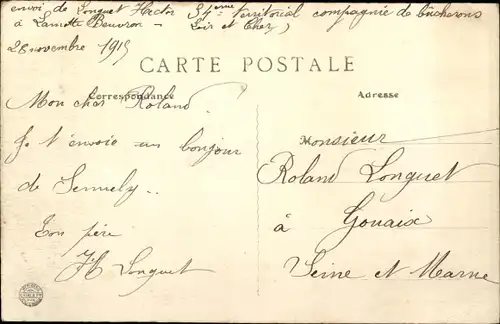 envoi de Longuet Hector 34eme territorial compagnie de bûcherons
à Lamotte Beuvron - Loir et Cher)
26 novembre 1915
CARTE POSTALE
Correspondance
Adresse
Mon cher Roland.
Je t'envoie un bonjour
de Sennely..
Ton père
H Longuet
Monsieur
Roland Longuet
à
Gouaix
Seine et Marne